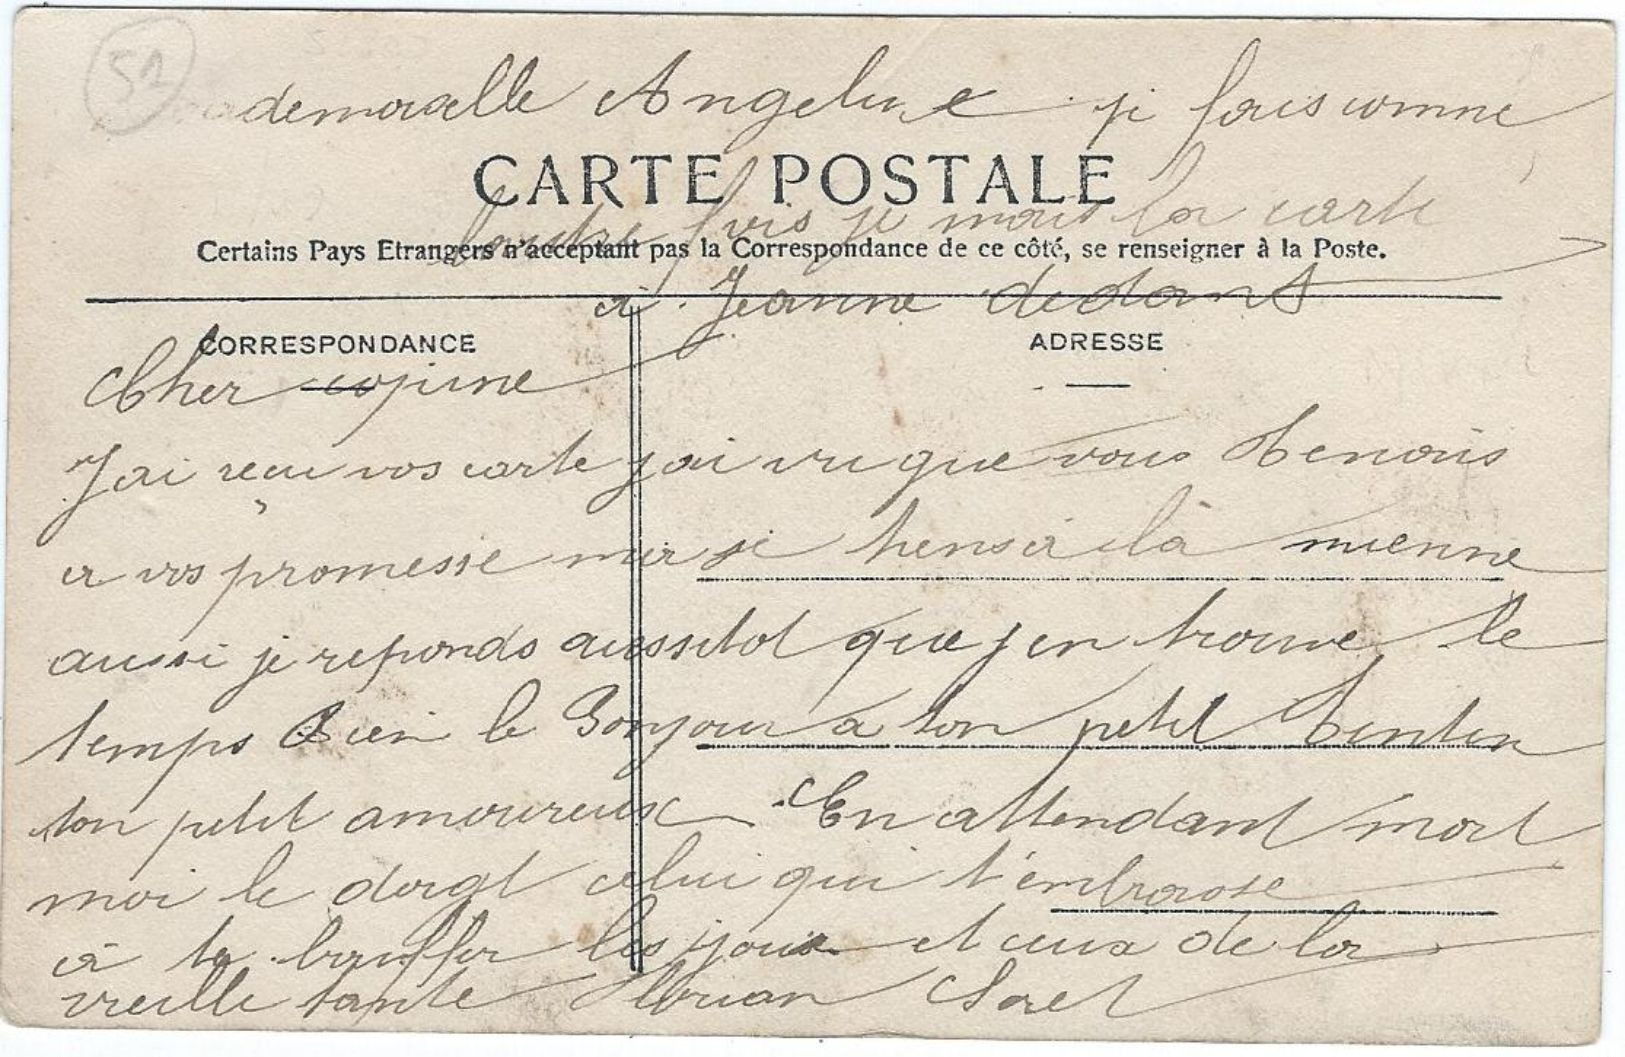 52
Mademoiselle Angeline je fais comme
CARTE POSTALE
lautre fois je mais la carte
Certains Pays Etrangers n'acceptant pas la Correspondance de ce côté, se renseigner à la Poste.
à Jeanne dedant
CORRESPONDANCE
ADRESSE
Cher copine
J'ai recu vos carte jai vu que vous tenais
a vos promesse moi je tiens à là mienne
aussi je reponds aussitot que jen trouve le
temps Bien le Bonjour a ton petit tintin
ton petit amoureux En attendant mort
moi le doigt celui qui t'embrasse
à te bouffer les joux et ceux de la
vieille tante Sorel